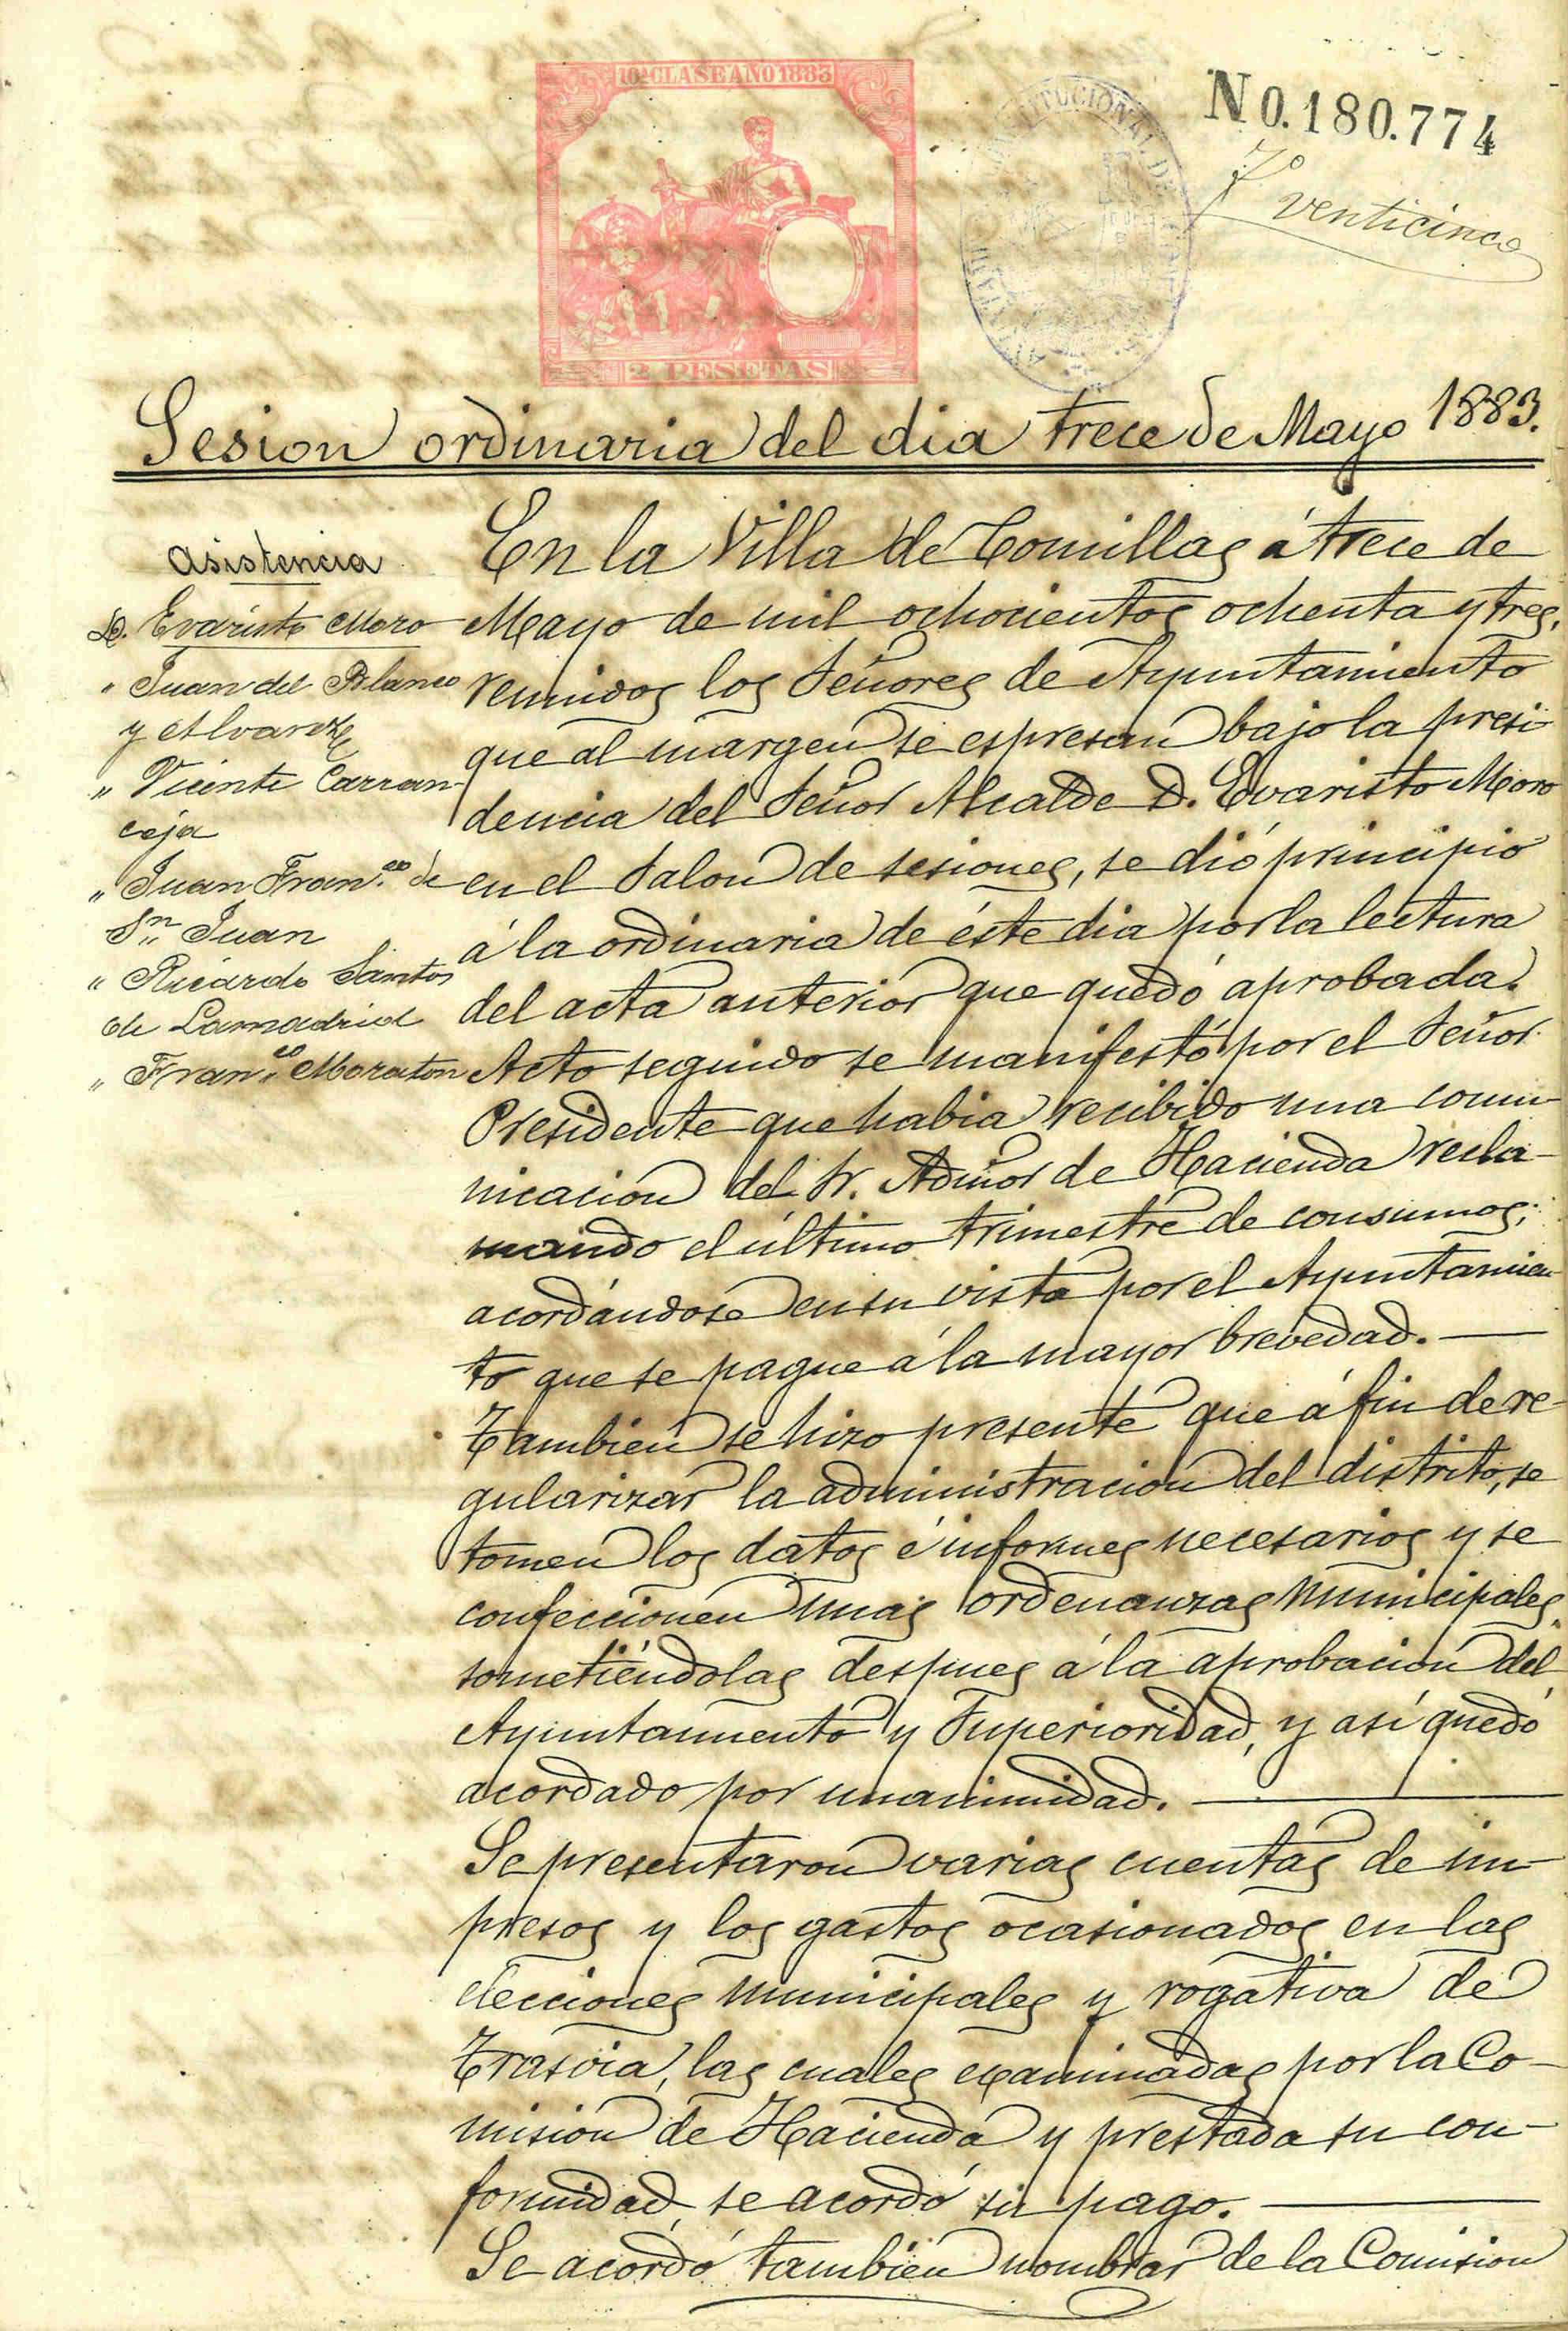 10ª CLASE AÑO 1883
2 PESETAS
N0.180.774
Fº venticinco
Sesion ordinaria del dia trece de Mayo 1883.
Asistencia
D. Evaristo Moro
" Juan del Blanco
y Alvarez
" Vicente Carran-
ceja
" Juan Fran.co de
Sn. Juan
" Ricardo Santos
de Lamadrid
" Fran.co Moraton
En la Villa de Comillas á trece de
Mayo de mil ochocientos ochenta y tres,
reunidos los Señores de Ayuntamiento
que al margen se espresan bajo la presi-
dencia del Señor Alcalde D. Evaristo Moro
en el Salon de sesiones, se dió principio
á la ordinaria de éste dia por la lectura
del acta anterior que quedó aprobada.
Acto seguido se manifestó por el Señor
Presidente que habia recibido una comu-
nicacion del Sr. Admor de Hacienda recla-
mando el último trimestre de consumos;
acordándose en su vista por el Ayuntamien-
to que se pague á la mayor brevedad.
Tambien se hizo presente que á fin de re-
gularizar la administracion del distrito, se
tomen los datos é informes necesarios y se
confeccionen unas ordenanzas municipales,
sometiéndolas despues á la aprobacion del
Ayuntamiento y Superioridad, y así quedó
acordado por unanimidad.
Se presentaron varias cuentas de im-
presos y los gastos ocasionados en las
elecciones municipales y rogativa de
Trasvia, las cuales examinadas por la Co-
mision de Hacienda y prestada su con-
formidad, se acordó su pago.
Se acordó tambien nombrar de la Comision